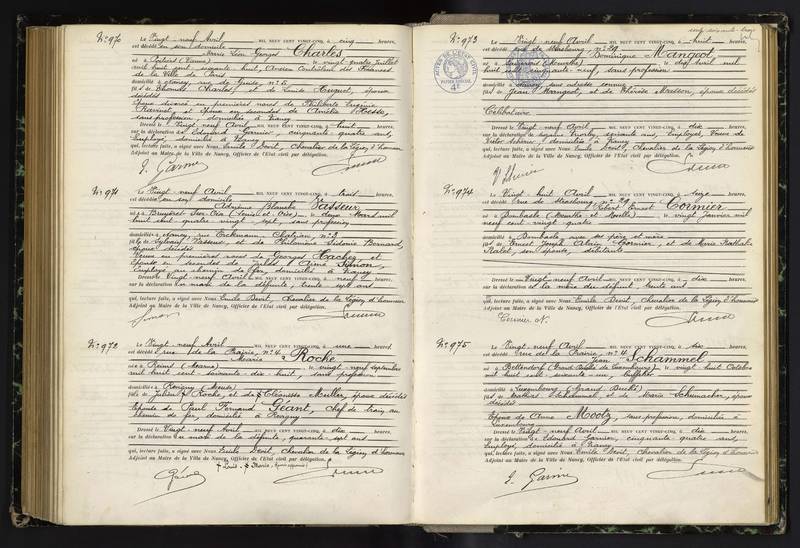 N° 970
Le Vingt-neuf Avril MIL NEUF CENT VINGT-CINQ, à cinq heures,
est décédé en son domicile
Marie Léon Georges Charles
né à Poitiers (Vienne) le vingt-quatre Juillet
mil huit cent soixante huit, Ancien Contrôleur des Finances
de la Ville de Paris
domicilié à Nancy, rue de
fils de Charles, et de Louise Huguet, époux
décédés
Epoux divorcé en premières noces de Philiberte Eugénie
et Epoux en secondes de Amélie Hesse,
sans profession, domiciliée à Nancy
Dressé le Vingt-neuf Avril MIL NEUF CENT VINGT-CINQ, à huit heures,
sur la déclaration de Edouard Garnier, cinquante quatre ans,
Employé, domicilié à Nancy
qui, lecture faite, a signé avec Nous Emile Devit, Chevalier de la Légion d'honneur
Adjoint au Maire de la Ville de Nancy, Officier de l'Etat civil par délégation.
N° 971
Le Vingt-neuf Avril MIL NEUF CENT VINGT-CINQ, à trois heures,
est décédée en son domicile
Adrienne Blanche Vasseur
née à Bruyères-sur-Oise (Seine et Oise), le deux Mars mil
huit cent quatre vingt sept, sans profession
domiciliée à Nancy, rue Erckmann Chatrian, n° 3
fille de Sylvain Vasseur, et de Philomène Sidonie Bernard,
époux décédés
Veuve en premières noces de Georges Hachez, et
Epouse en secondes de Jules Aimé Simon,
Employé au chemin de fer, domicilié à Nancy
Dressé le Vingt-neuf Avril MIL NEUF CENT VINGT-CINQ, à neuf heures,
sur la déclaration du mari de la défunte, trente sept ans
qui, lecture faite, a signé avec Nous Emile Devit, Chevalier de la Légion d'honneur
Adjoint au Maire de la Ville de Nancy, Officier de l'Etat civil par délégation.
Simon
N° 972
Le Vingt-neuf Avril MIL NEUF CENT VINGT-CINQ, à une heures,
est décédée rue de la Prairie, n° 4
Marie Roche
née à Reims (Marne) le vingt-neuf septembre
mil huit cent soixante-dix-huit, sans profession
domiciliée à Revigny (Meuse)
fille de Julien Roche, et de Eléonore Muller, époux décédés
Epouse de Paul Géant, Chef de train au
chemin de fer, domicilié à Revigny
Dressé le Vingt-neuf Avril MIL NEUF CENT VINGT-CINQ, à dix heures,
sur la déclaration du mari de la défunte, quarante-sept ans
qui, lecture faite, a signé avec Nous Emile Devit, Chevalier de la Légion d'honneur
Adjoint au Maire de la Ville de Nancy, Officier de l'Etat civil par délégation.
N° 973
Le Vingt-neuf Avril MIL NEUF CENT VINGT-CINQ, à huit heures,
est décédé rue de Strasbourg, n° 29
Dominique Mangeot
mil
huit cent cinquante-neuf, sans profession
domicilié à Nancy, sus adresse
fils de Jean Mangeot, et de Thérèse Masson, époux décédés
Célibataire
Dressé le Vingt-neuf Avril MIL NEUF CENT VINGT-CINQ, à dix heures,
sur la déclaration de soixante ans, Employé,
domicilié à Nancy
qui, lecture faite, a signé avec Nous Emile Devit, Chevalier de la Légion d'honneur
Adjoint au Maire de la Ville de Nancy, Officier de l'Etat civil par délégation.
N° 974
Le Vingt-huit Avril MIL NEUF CENT VINGT-CINQ, à onze heures,
est décédé rue de Strasbourg, n° 29
Ernest Cormier
né à Dombasle (Meurthe et Moselle) le vingt Janvier mil
neuf cent vingt quatre
domicilié à Dombasle avec ses père et mère
fils de Ernest Joseph Alain Cormier, et de Marie Nathalie
son épouse, débitants
Dressé le Vingt-neuf Avril MIL NEUF CENT VINGT-CINQ, à dix heures,
sur la déclaration de la mère du défunt, trente ans
qui, lecture faite, a signé avec Nous Emile Devit, Chevalier de la Légion d'honneur
Adjoint au Maire de la Ville de Nancy, Officier de l'Etat civil par délégation.
Cormier N.
N° 975
Le Vingt-neuf Avril MIL NEUF CENT VINGT-CINQ, à six heures,
est décédé rue de la Prairie, n° 4
Jean Schammel
né à Bettendorf (Grand-Duché de Luxembourg) le vingt huit Octobre
mil huit cent soixante-un,
domicilié à Luxembourg (Grand Duché)
fils de Mathias Schammel, et de Marie Schumacher, époux
décédés
Epoux de Anna Mootz, sans profession, domiciliée à
Luxembourg
Dressé le Vingt-neuf Avril MIL NEUF CENT VINGT-CINQ, à dix heures,
sur la déclaration de Edouard Garnier, cinquante quatre ans,
Employé, domicilié à Nancy
qui, lecture faite, a signé avec Nous Emile Devit, Chevalier de la Légion d'honneur
Adjoint au Maire de la Ville de Nancy, Officier de l'Etat civil par délégation.